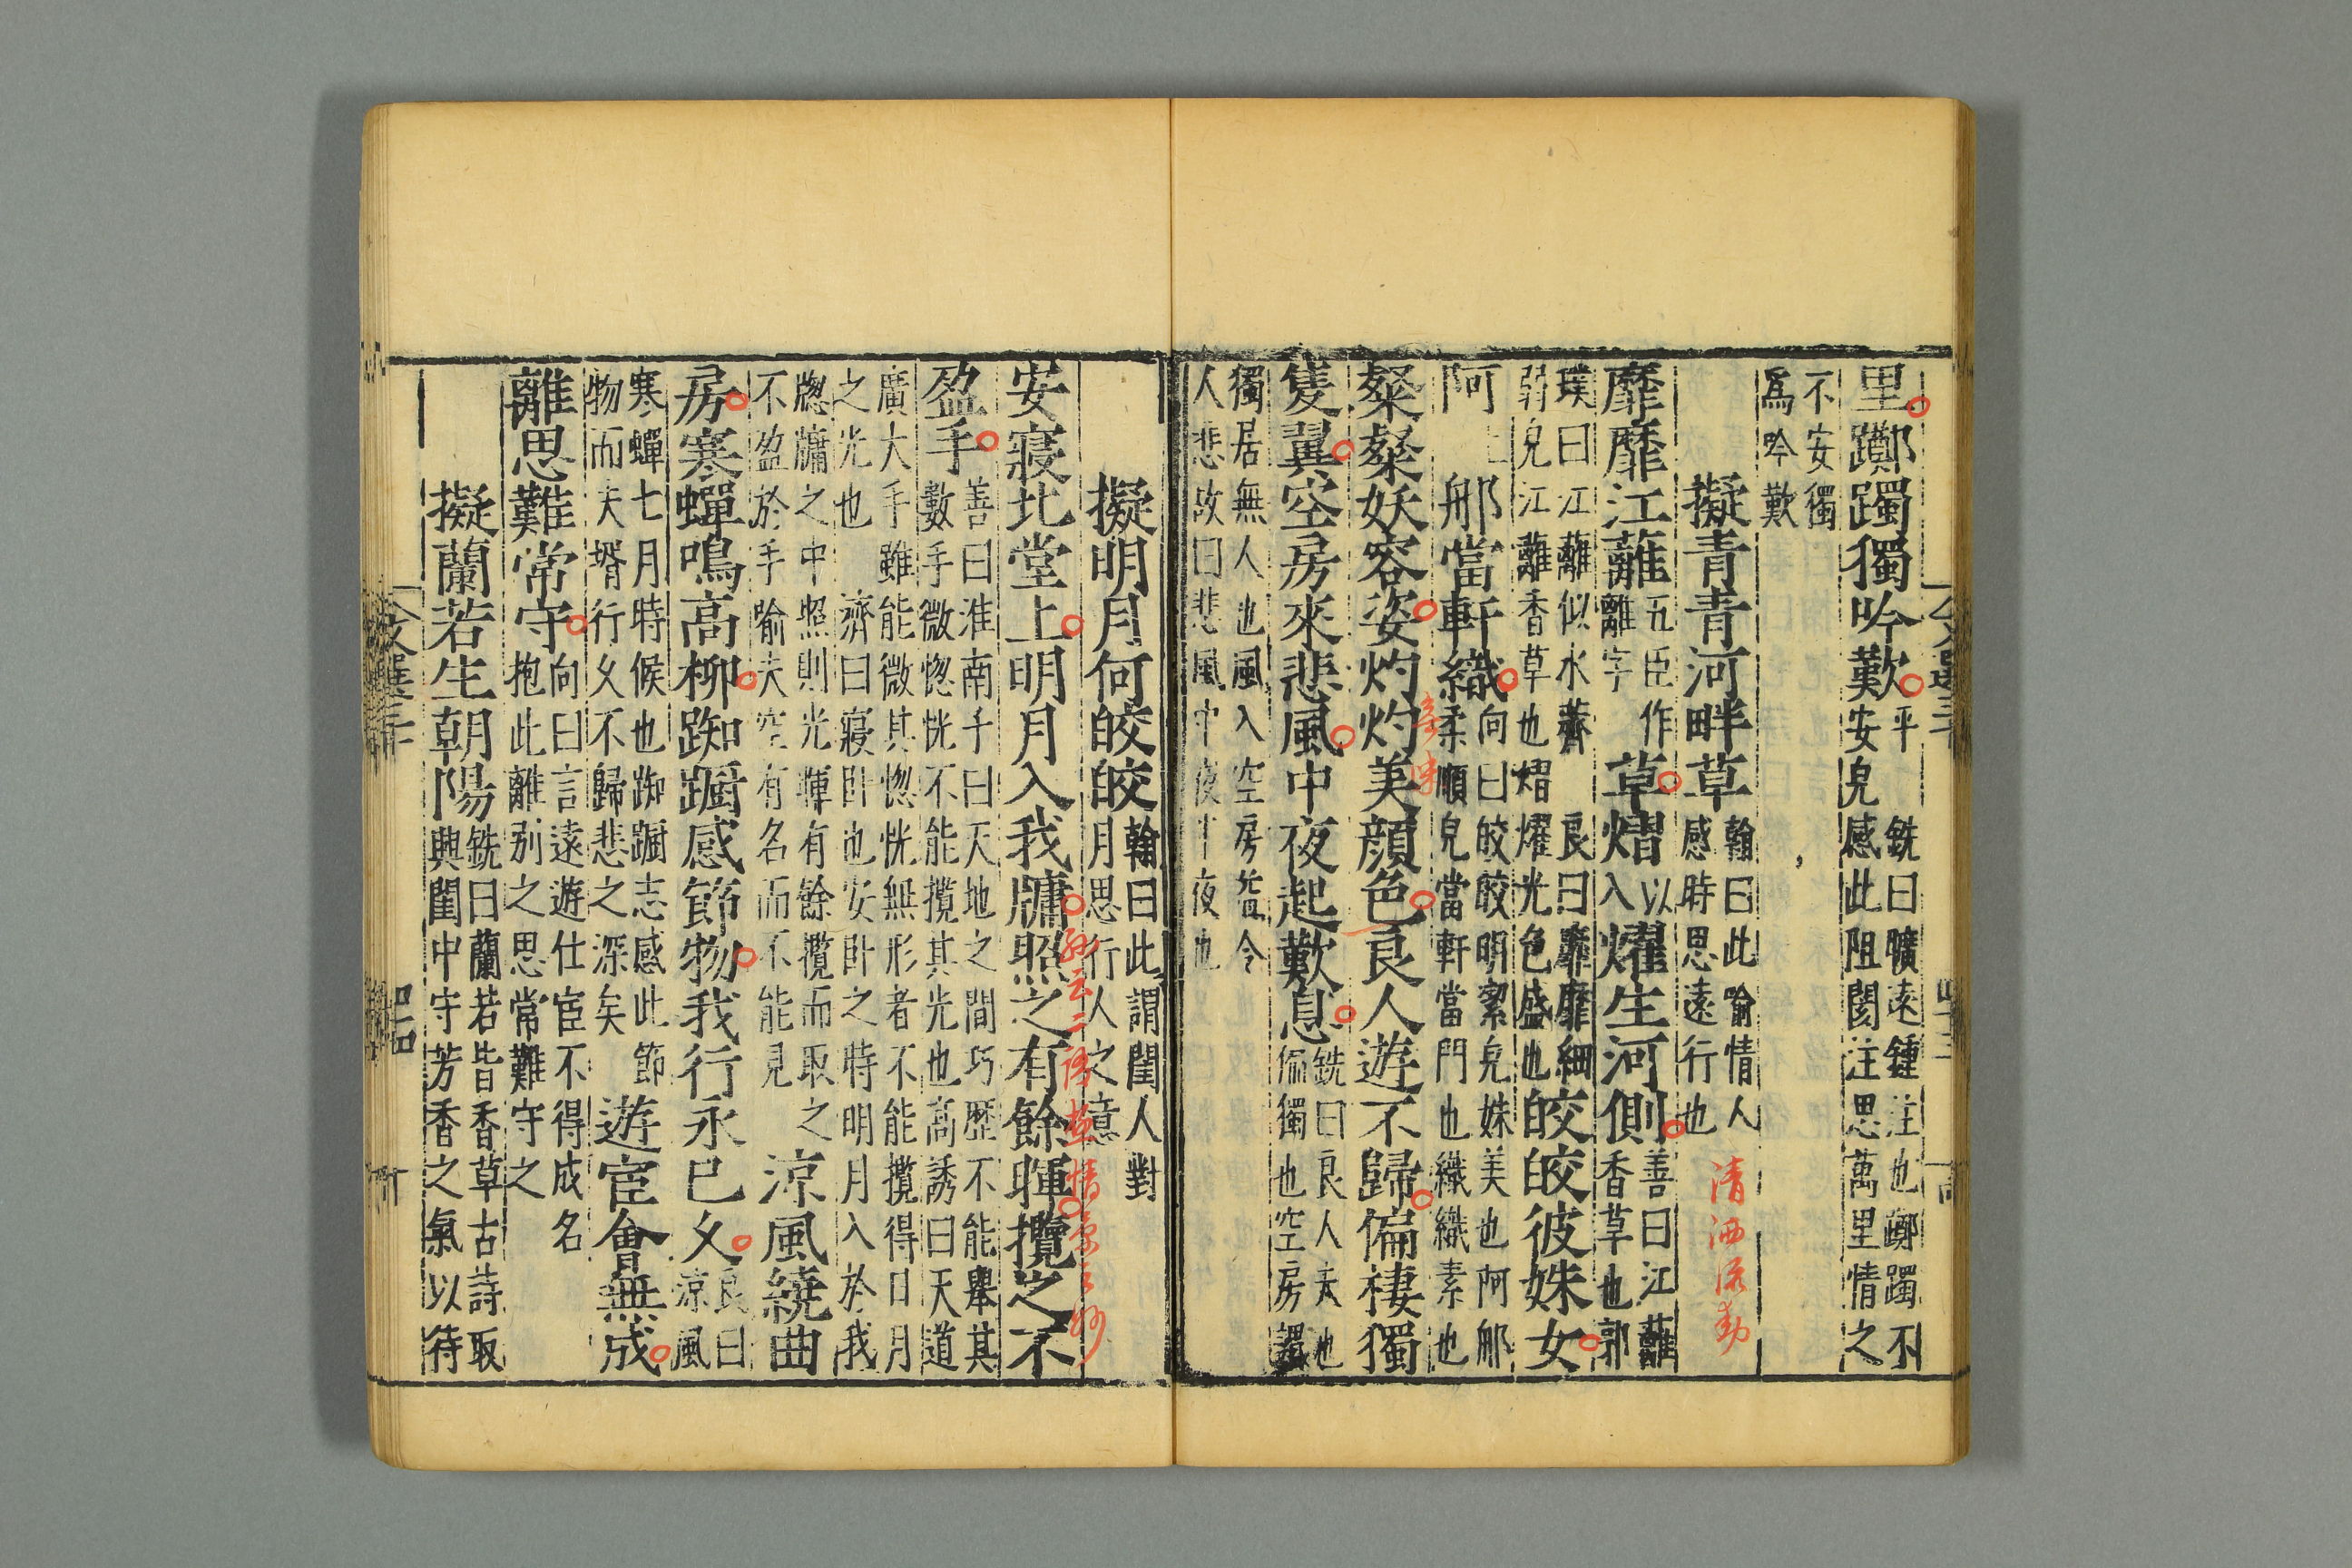 里躑躅獨吟歎
平
安皃
銑曰曠遠鍾注也躑躅不
感此阻閡注思萬里情之
不安獨
爲吟歎
擬青青河畔草
翰曰此喻情人
感時思遠行也
清洒流動
靡靡江蘺
五臣作
離字
草熠
以
入
燿生河側
善曰江蘺
香草也郭
璞曰江蘺似水薺
弱皃江離香草也熠燿光色盛也
良曰靡靡細
皎皎彼姝女
阿
那當軒織
向曰皎皎明絜皃姝美也阿那
柔順皃當軒當門也織織素也
粲粲妖容姿灼灼美顏色良人遊不歸偏棲獨
隻翼空房來悲風中夜起歎息
銑曰良人夫也
偏獨也空房謂
獨居無人也風入空房皆令
人悲故曰悲風中夜半夜也
擬明月何皎皎
翰曰此謂閨人對
月思行人之意
安寢北堂上明月入我牖照之有餘暉攬之不
孫云二語益情景之妙
盈手
善曰淮南子曰天地之間巧歷不能舉其
數手微惚恍不能攬其光也高誘曰天道
廣大手雖能微其惚恍無形者不能攬得日月
之光也
濟曰寢卧也安卧之時明月入於我
牎牖之中照則光暉有餘攬而取之
不盈於手喻夫空有名而不能見
涼風繞曲
房寒蟬鳴高柳踟蹰感節物我行永已久
良曰
涼風
寒蟬七月時候也踟蹰志感此節
物而夫壻行久不歸悲之深矣
遊宦會無成
離思難常守
向曰言遠遊仕宦不得成名
抱此離别之思常難守之
擬蘭若生朝陽
銑曰蘭若皆香草古詩取
興閨中守芳香之氣以待
文選三十
四十四